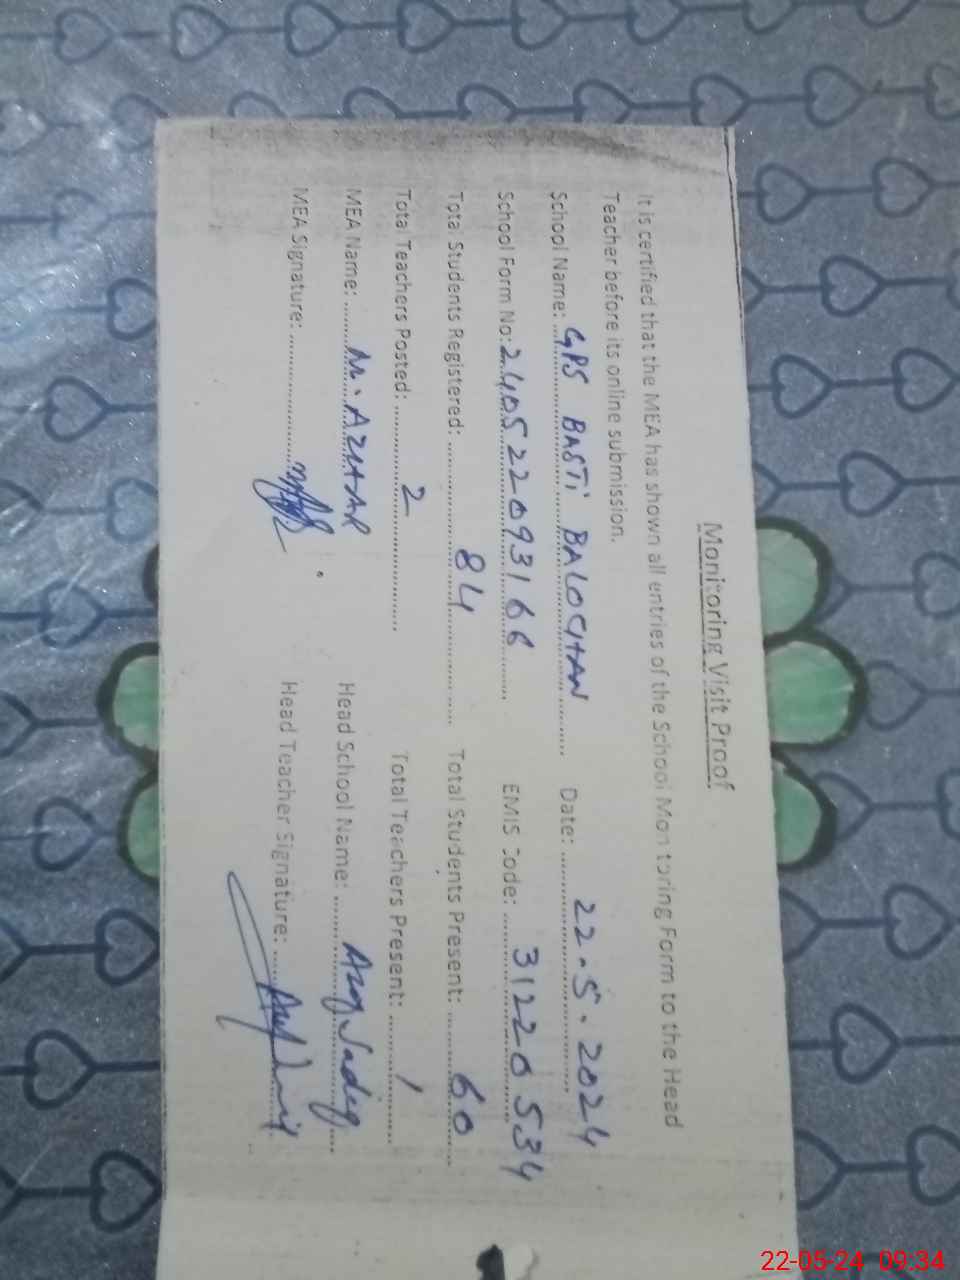 Monitoring Visit Proof
It is certified that the MEA has shown all entries of the School Monitoring Form to the Head
Teacher before its online submission.
School Name: GPS BASTI BALOCHAN Date: 22.5.2024
School Form No: 240522093166 EMIS Code: 31220534
Total Students Registered: 84 Total Students Present: 60
Total Teachers Posted: 2 Total Teachers Present: 1
MEA Name: M. AZHAR Head School Name: Sadiq
MEA Signature: Head Teacher Signature:
22-05-24 09:34